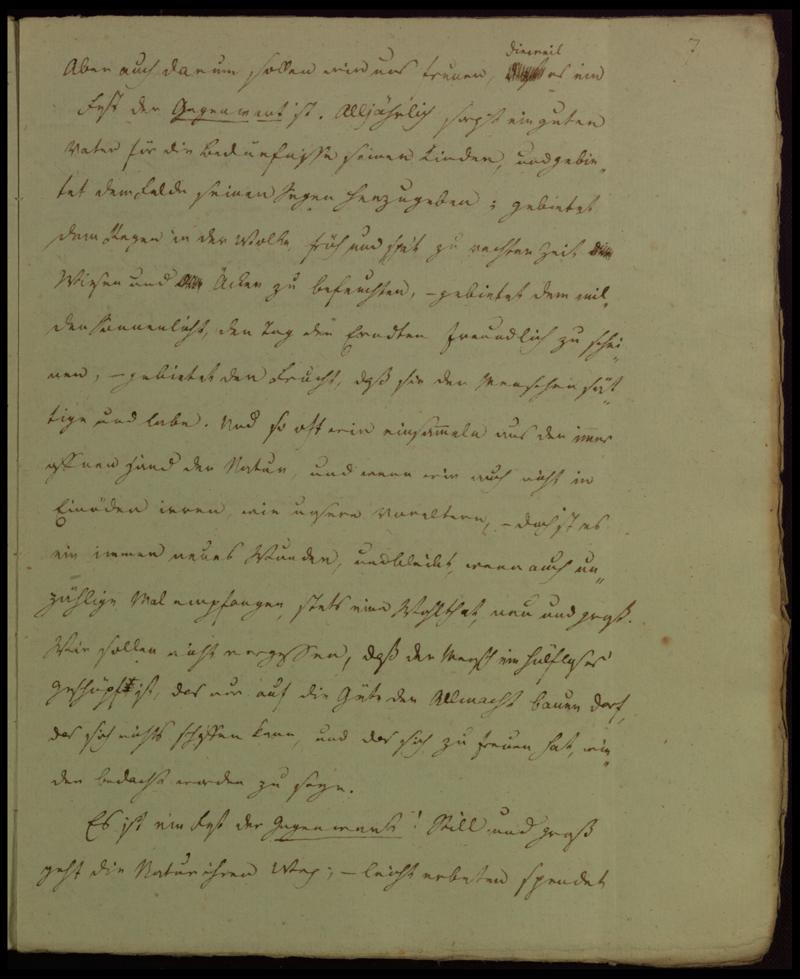 7
dieweil
Aber auch darum sollen wir uns freuen, es ein
Fest der Gegenwart ist. Alljährlich sorgt ein guter
Vater für die Bedürfnisse seiner Kinder, und gebie„
tet dem Felde seinen Segen herzugeben; gebietet
dem Regen in der Wolke, früh und spät zu rechter Zeit die
Wiesen und Äcker zu befeuchten, – gebietet dem mil„
den Sonnenlicht, den Tag der Erndten freundlich zu schei„
nen, – gebietet der Frucht, daß sie den Menschen sät„
tige und labe. Und so oft wir einsammeln aus der immer
offnen Hand der Natur, und wenn wir auch nicht in
Einöden irren, wie unsere Voreltern, – doch ist es
ein immer neues Wunder, und bleibt, wenn auch un„
zählige Mal empfangen, stets eine Wohlthat, neu und groß.
Wir sollen nicht vergessen, daß der Mensch ein hülfloses
Geschöpf ist, das nur auf die Güte der Allmacht bauen darf,
das sich nichts schaffen kann, und das sich zu freuen hat, wie„
der bedacht worden zu seyn.
Es ist ein Fest der Gegenwart! Still und groß
geht die Natur ihren Weg; – leicht erbeten spendet